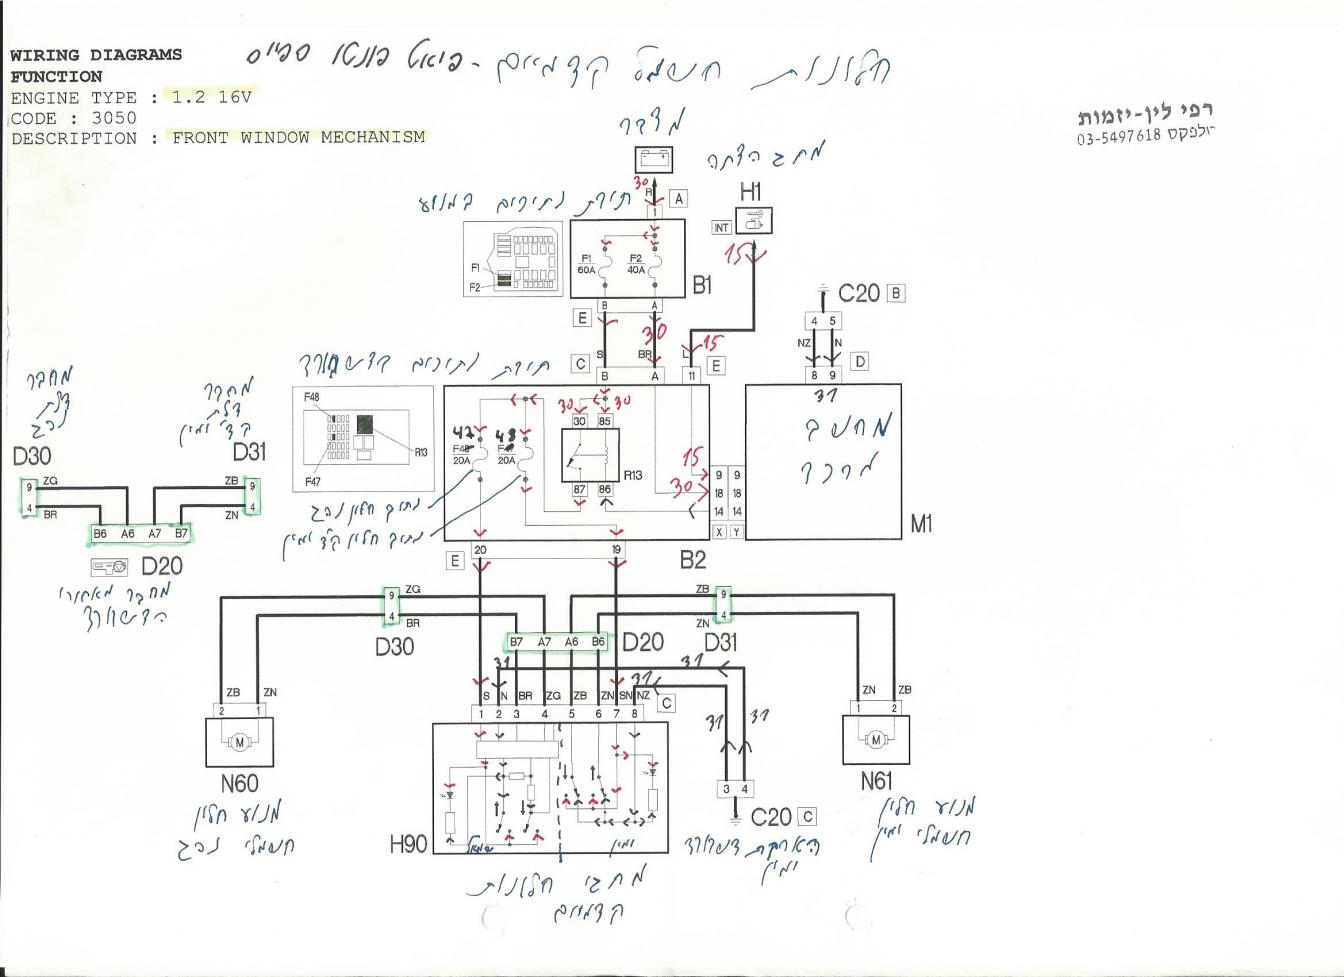 WIRING DIAGRAMS
FUNCTION
ENGINE TYPE : 1.2 16V
CODE : 3050
DESCRIPTION : FRONT WINDOW MECHANISM
חלונות חשמל קדמיים - פיאט פונטו
רפי לין-יזמות
03-5497618
מצבר
מתג הצתה
30
R
A
1
H1
INT
15
תיבת נתיכים במנוע
F1
F2
F1
60A
F2
40A
B1
B
A
E
S
BR
30
L
15
C
B
A
11
E
C20 B
4 5
NZ N
8 9
D
31
מחשב
מרכזי
M1
תיבת נתיכים בדשבורד
F48
F47
R13
47
20A
20A
30
30
30 85
R13
87 86
15
30
9 9
18 18
14 14
X Y
B2
נתיך חלון נהג
נתיך חלון קד ימין
E
20
19
מחבר
דלת
נהג
מחבר
דלת
קד' ימין
D30
D31
9
4
ZG
BR
ZB
ZN
9
4
B6 A6 A7 B7
D20
מחבר מאחורי
הדשבורד
9
4
ZG
BR
D30
ZB
ZN
9
4
D31
B7 A7 A6 B6
D20
31
31
31
ZB ZN
2 1
M
N60
מנוע חלון
חשמלי נהג
S N BR ZG ZB ZN SN NZ
C
1 2 3 4 5 6 7 8
31
31
3 4
C20 C
הארקת דשבורד
ימין
ZN ZB
1 2
M
N61
מנוע חלון
חשמלי ימין
H90
שמאל
ימין
מתגי חלונות
קדמיים